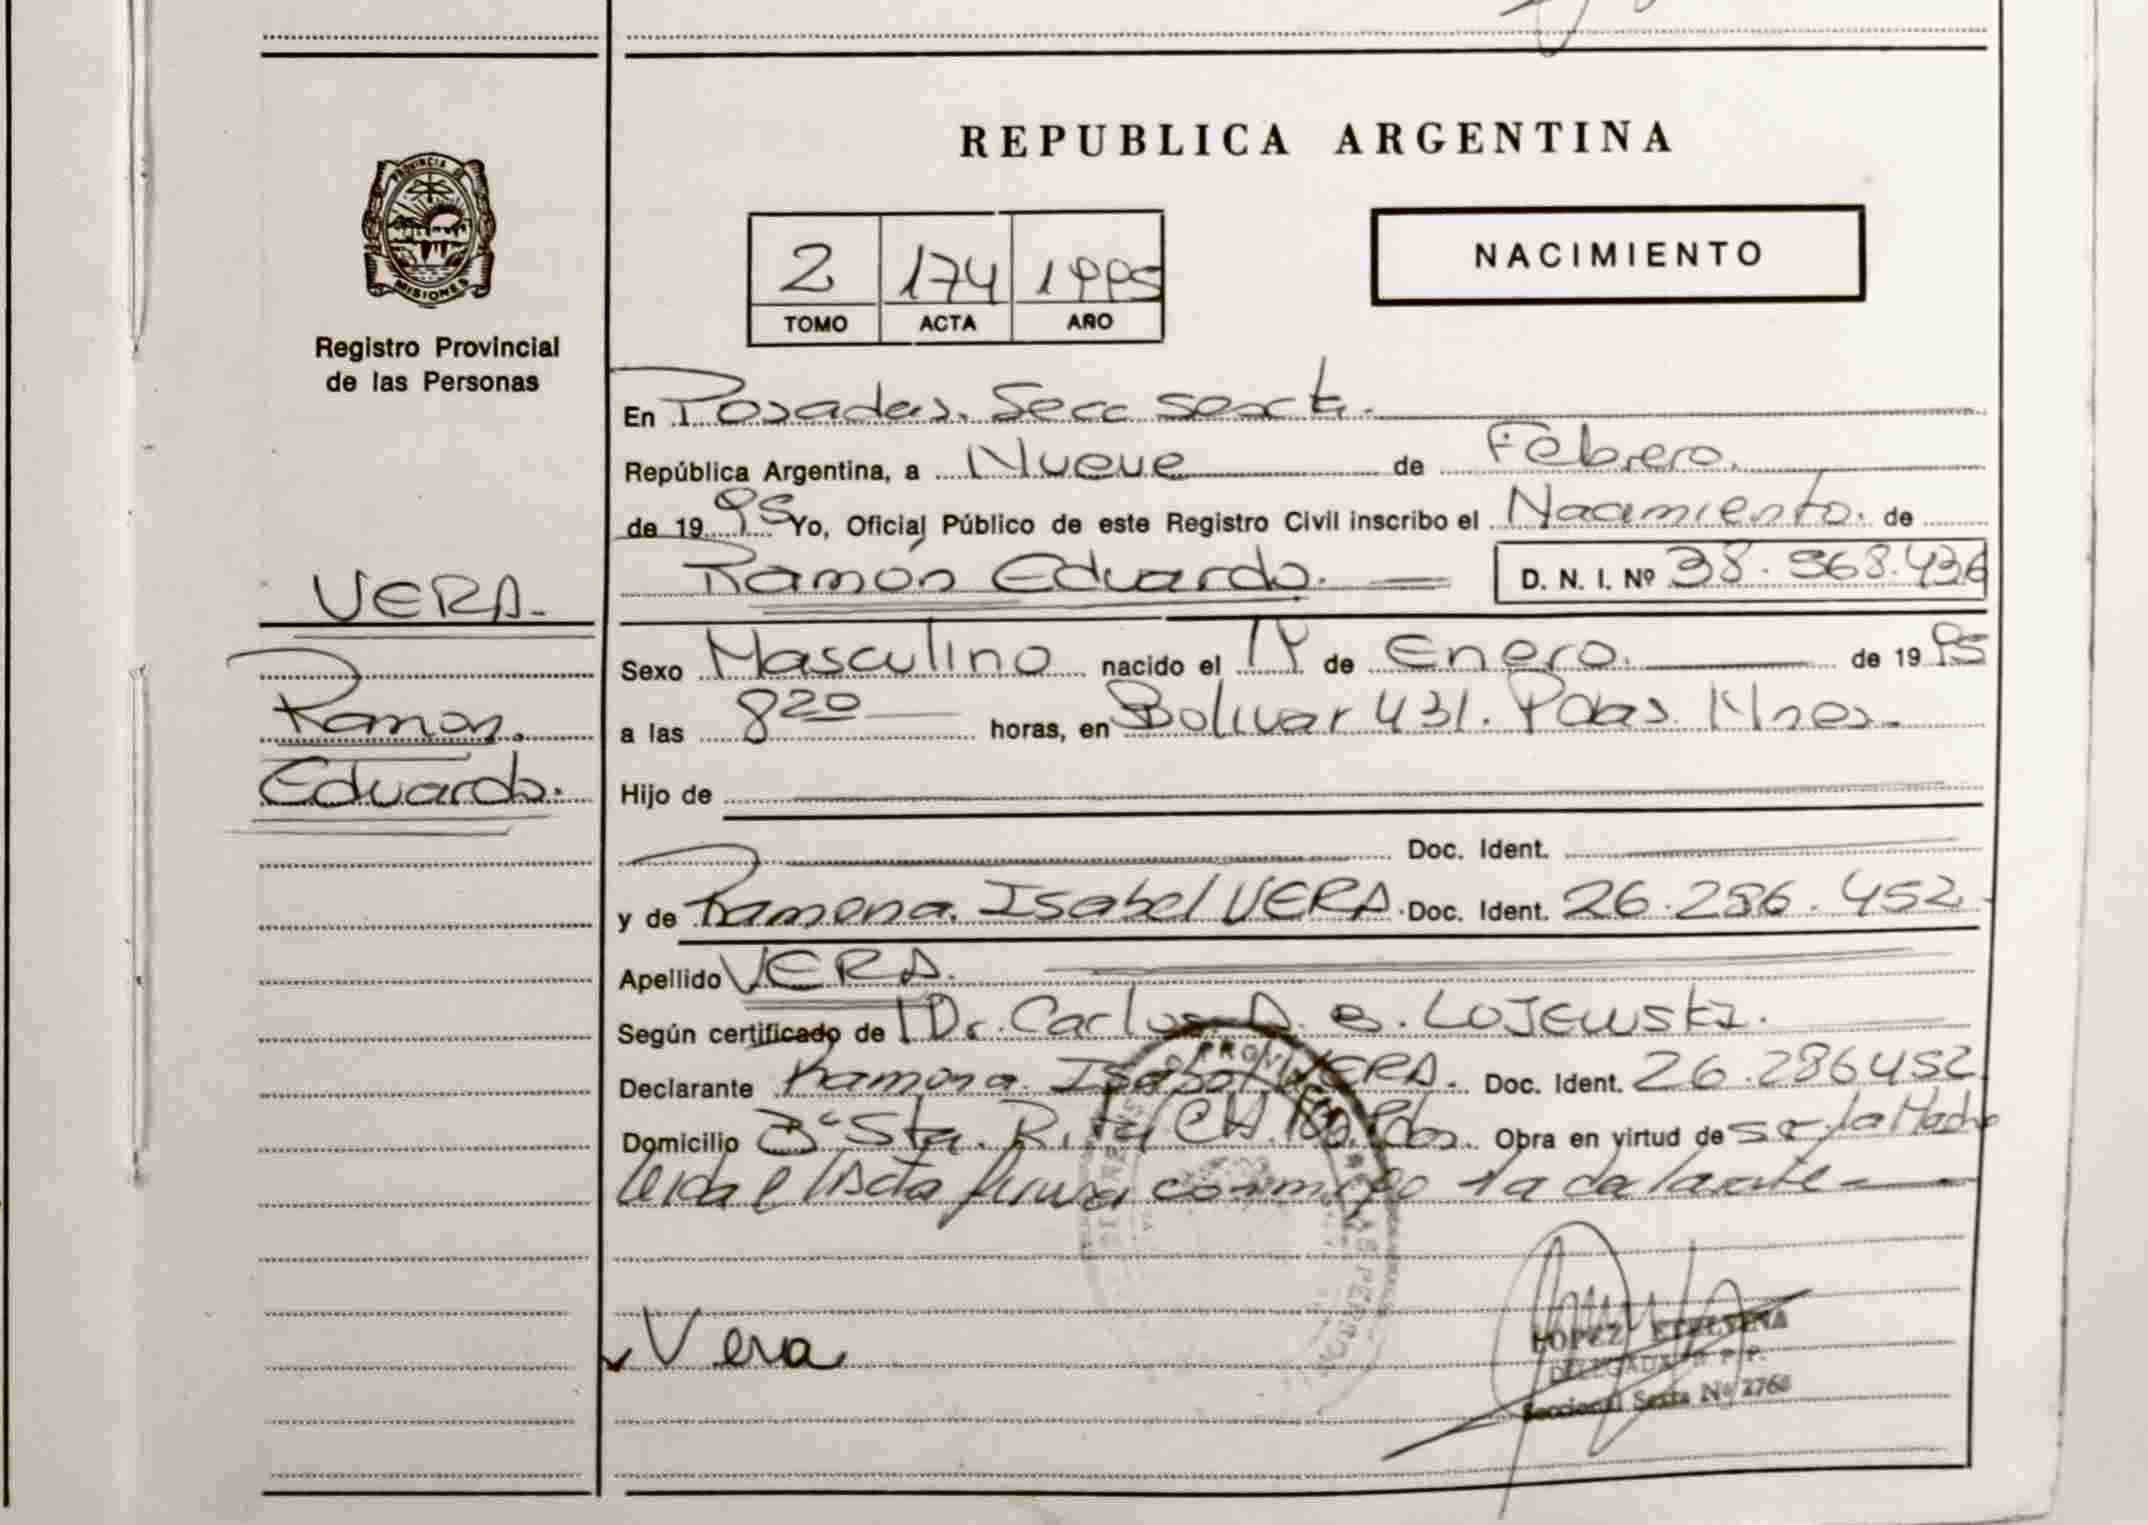 REPUBLICA ARGENTINA
PROVINCIA DE
MISIONES
Registro Provincial
de las Personas
NACIMIENTO
2 174 1995
TOMO ACTA AÑO
En Posadas. Secc sexta.
República Argentina, a Nueve de Febrero.
de 1995 Yo, Oficial Público de este Registro Civil inscribo el Nacimiento. de
Ramón Eduardo. D. N. I. Nº 38.968.436
VERA.
Ramon.
Eduardo.
Sexo Masculino nacido el 14 de Enero. de 1995
a las 8 20 horas, en Bolivar 431. Pdas. Mnes.
Hijo de
Doc. Ident.
y de Ramona. Isabel VERA. Doc. Ident. 26.286.452
Apellido VERA.
Según certificado de Dr. Carlos A. B. Lojewski.
Declarante Ramona. Isabel VERA. Doc. Ident. 26.286452
Domicilio Bº Sta. Rita CH. Pdas. Obra en virtud de ser la Madre
leida el Acta firma conmigo la declarante
Vera
LOPEZ ETELVINA
DELEGADA R. P. P.
Seccional Sexta Nº 2768